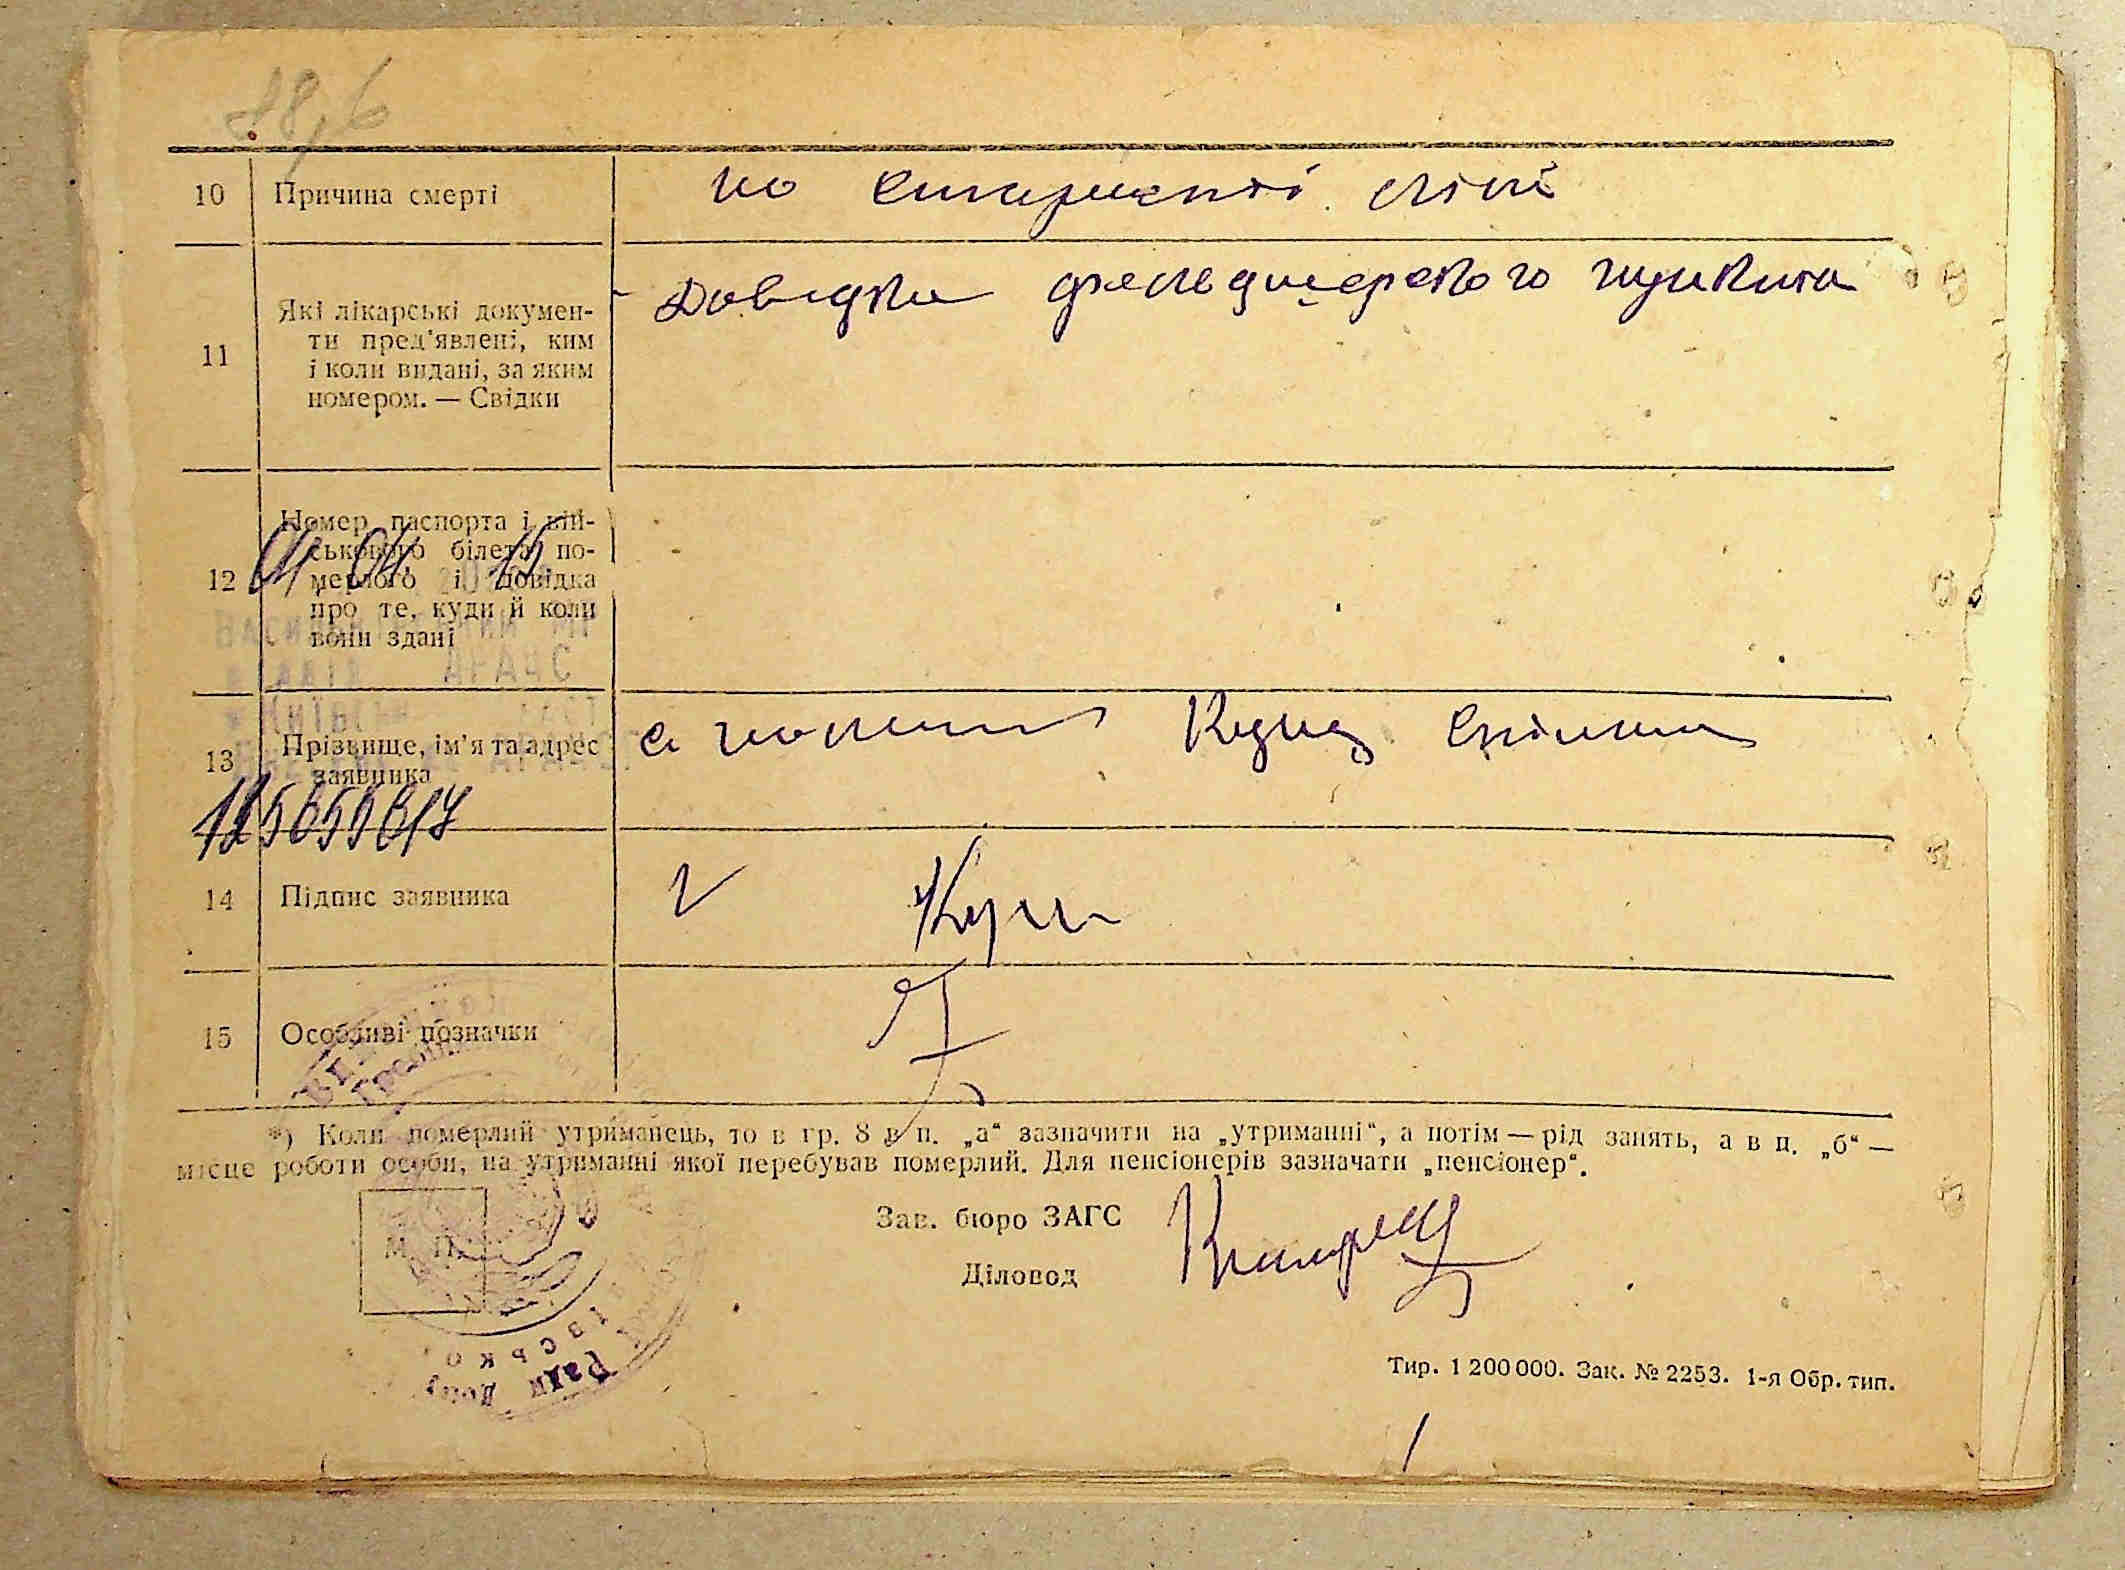 18,6
10 Причина смерті по старшості літ
11 Які лікарські докумен-
ти пред'явлені, ким
і коли видані, за яким
номером. — Свідки
Довідка фельдшерського пункта
12 Номер паспорта і вій-
ськового білета по-
мерлого і довідка
про те, куди й коли
вони здані
01 04 15
АРАЦС
13 Прізвище, ім'я та адрес
заявника
с
14 Підпис заявника
15 Особливі позначки
*) Коли померлий утриманець, то в гр. 8 в п. „а“ зазначити на „утриманні“, а потім — рід занять, а в п. „б“ —
місце роботи особи, на утриманні якої перебував померлий. Для пенсіонерів зазначати „пенсіонер“.
М. П.
Зав. бюро ЗАГС
Діловод
Ради
Тир. 1 200 000. Зак. № 2253. 1-я Обр. тип.